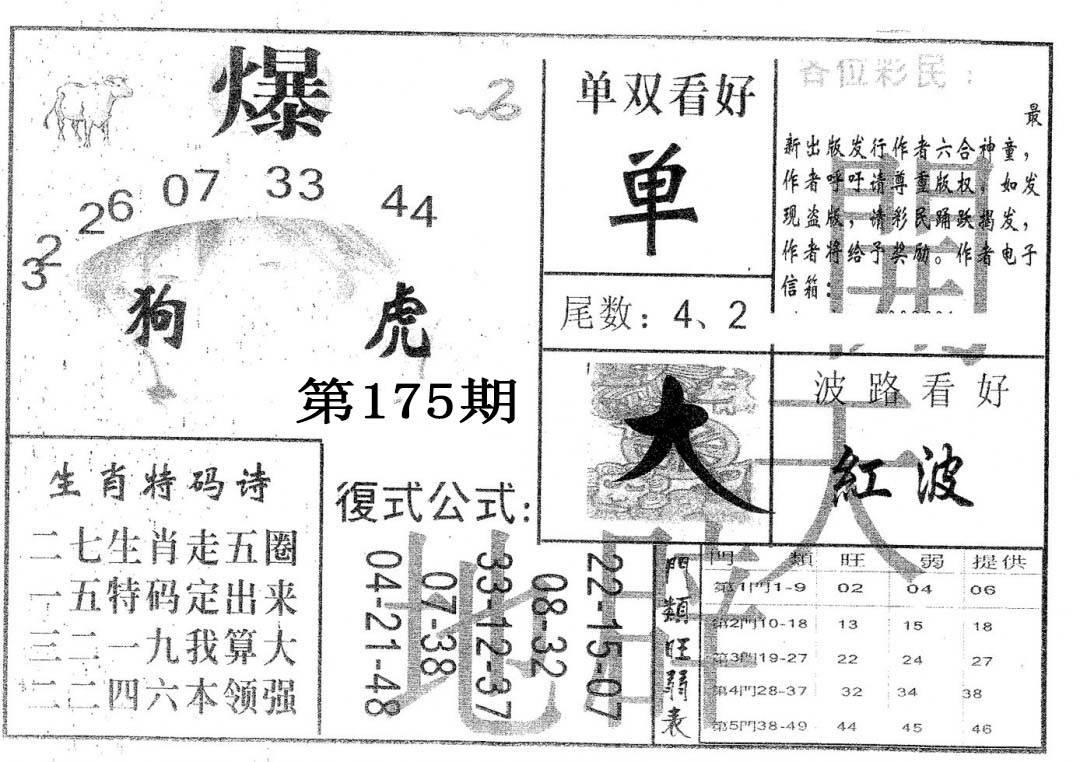 爆
32
26
07
33
44
狗
虎
第175期
单双看好
单
尾数：4、2
大
各位彩民：
最
新出版发行作者六合神童，
作者呼吁请尊重版权。如发
现盗版，请彩民踊跃揭发，
作者将给予奖励。作者电子
信箱：
波路看好
紅波
生肖特码诗
二七生肖走五圈
一五特码定出来
三二一九我算大
二二四六本领强
復式公式：
22-15-07
08-32
33-12-37
07-38
04-21-48
門類旺弱表
門 類 旺 弱 提供
第1門1-9 02 04 06
第2門10-18 13 15 18
第3門19-27 22 24 27
第4門28-37 32 34 38
第5門38-49 44 45 46